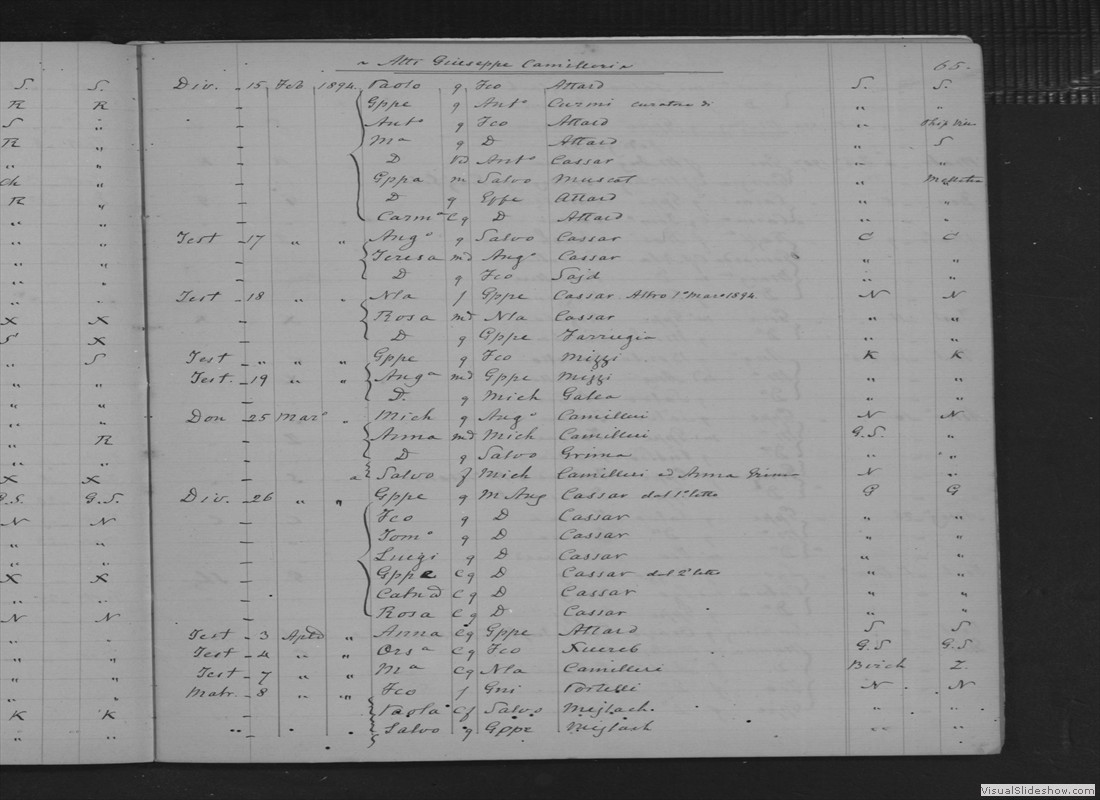 Attr Giuseppe Camilleri 65.
S. S. Div. - 15 Feb 1894. Paolo q Fco Attard S. S.
R R - Gppe q Anto Curmi curatore di " "
S " - Anto q Fco Attard "
R " - Ma q D Attard " S
" " - D Vd Anto Cassar " "
Ch " - Gppa m Salvo Muscat "
R " - D q Gppe Attard " "
" " - Carma Cq D Attard " "
" " Test - 17 " " Ango q Salvo Cassar C C
" " - Teresa md Ango Cassar " "
" " - D q Fco Sajd " "
" " Test - 18 " " Nla f Gppe Cassar Altro 1o Marzo 1894. N N
X X - Rosa md Nla Cassar " "
S X - D q Gppe Farrugia " "
" S Test - " " " Gppe q Fco Mizzi K K
" " Test. - 19 " " Anga md Gppe Mizzi " "
" " - D. q Mich Galea " "
" " Don - 25 Maro " Mich q Ango Camilleri N N
" R - Anna md Mich Camilleri G.S. "
" " - D q Salvo Grima " "
X X - a Salvo f Mich Camilleri ed Anna Grima N "
G.S. G.S. Div. - 26 " " Gppe q M Ang Cassar del 1o letto G G
N N - Fco q D Cassar " "
" " - Tomo q D Cassar " "
" " - Luigi q D Cassar " "
X X - Gppe Cq D Cassar del 2o letto " "
" " - Catnd Cq D Cassar " "
N N - Rosa Cq D Cassar " "
" " Test - 3 Aple " Anna Cq Gppe Attard S S
" " Test - 4 " " Orsa Cq Fco Xuereb G.S G.S
" " Test - 7 " " Ma Cq Nla Camilleri Birch Z.
" " Matr. - 8 " " Fco f Gni Portelli N N
K K - Paola Cf Salvo Mejlach. " "
" " " - " " Salvo q Gppe Mejlach " "
VisualSlideshow.com